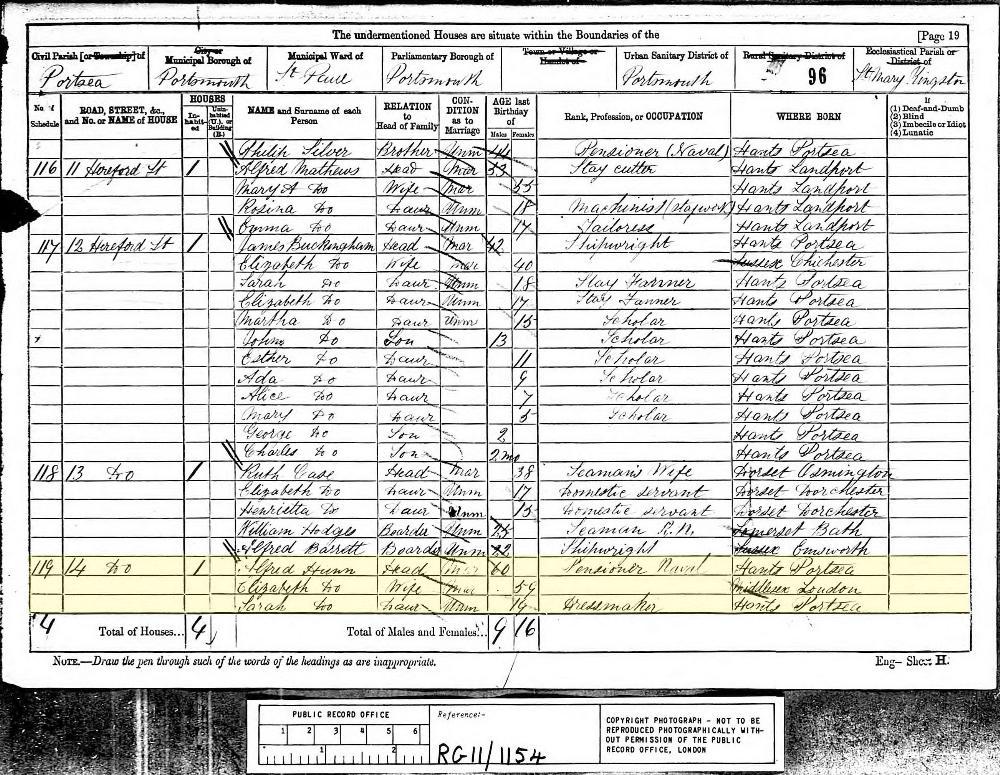 The undermentioned Houses are situate within the Boundaries of the [Page 19
Civil Parish [or Township] of Portsea
City or Municipal Borough of Portsmouth
Municipal Ward of St Paul
Parliamentary Borough of Portsmouth
Town or Village or Hamlet of
Urban Sanitary District of Portsmouth
Rural Sanitary District of 96
Ecclesiastical Parish or District of St Mary Kingston
No. of Schedule
ROAD, STREET, &c., and No. or NAME of HOUSE
HOUSES
Inhabited
Uninhabited (U.), or Building (B.)
NAME and Surname of each Person
RELATION to Head of Family
CONDITION as to Marriage
AGE last Birthday of
Males Females
Rank, Profession, or OCCUPATION
WHERE BORN
If
(1) Deaf-and-Dumb
(2) Blind
(3) Imbecile or Idiot
(4) Lunatic
Philip Silver Brother Unm 44 Pensioner (Naval) Hants Portsea
116 11 Hereford St 1 Alfred Mathews Head Mar 53 Stay cutter Hants Landport
Mary A Do Wife Mar 55 Hants Landport
Rosina Do Daur Unm 18 Machinist (staywork) Hants Landport
Emma Do Daur Unm 17 Tailoress Hants Landport
117 12 Hereford St 1 James Buckingham Head Mar 42 Shipwright Hants Portsea
Elizabeth Do Wife Mar 40 Sussex Chichester
Sarah Do Daur Unm 18 Stay Fanner Hants Portsea
Elizabeth Do Daur Unm 17 Stay Fanner Hants Portsea
Martha Do Daur Unm 15 Scholar Hants Portsea
John Do Son 13 Scholar Hants Portsea
Esther Do Daur 11 Scholar Hants Portsea
Ada Do Daur 9 Scholar Hants Portsea
Alice Do Daur 7 Scholar Hants Portsea
Mary Do Daur 5 Scholar Hants Portsea
George Do Son 2 Hants Portsea
Charles Do Son 2 mo Hants Portsea
118 13 Do 1 Ruth Case Head Mar 38 Seaman's Wife Dorset Osmington
Elizabeth Do Daur Unm 17 Domestic servant Dorset Dorchester
Henrietta Do Daur Unm 15 Domestic servant Dorset Dorchester
William Hodges Boarder Unm Seaman R.N. Somerset Bath
Alfred Barrett Boarder Unm 22 Shipwright Sussex Emsworth
119 14 Do 1 Alfred Hunn Head Mar 60 Pensioner Naval Hants Portsea
Elizabeth Do Wife Mar 59 Middlesex London
Sarah Do Daur Unm 19 Dressmaker Hants Portsea
4 Total of Houses... 4 Total of Males and Females.. 9 16
NOTE.—Draw the pen through such of the words of the headings as are inappropriate.
Eng— Sheet H.
PUBLIC RECORD OFFICE
1 2 3 4 5 6
1 2
Reference:-
RG11/1154
COPYRIGHT PHOTOGRAPH - NOT TO BE
REPRODUCED PHOTOGRAPHICALLY WITH-
OUT PERMISSION OF THE PUBLIC
RECORD OFFICE, LONDON